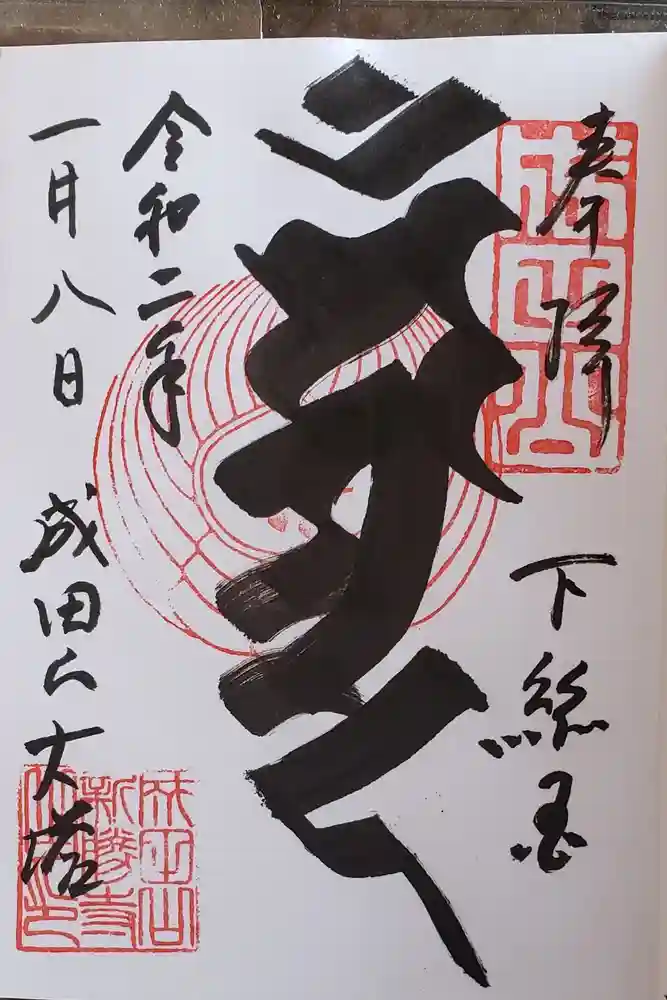 奉拝
下総国
令和二年
一月八日
成田山大塔
成田山
成田山
新勝寺